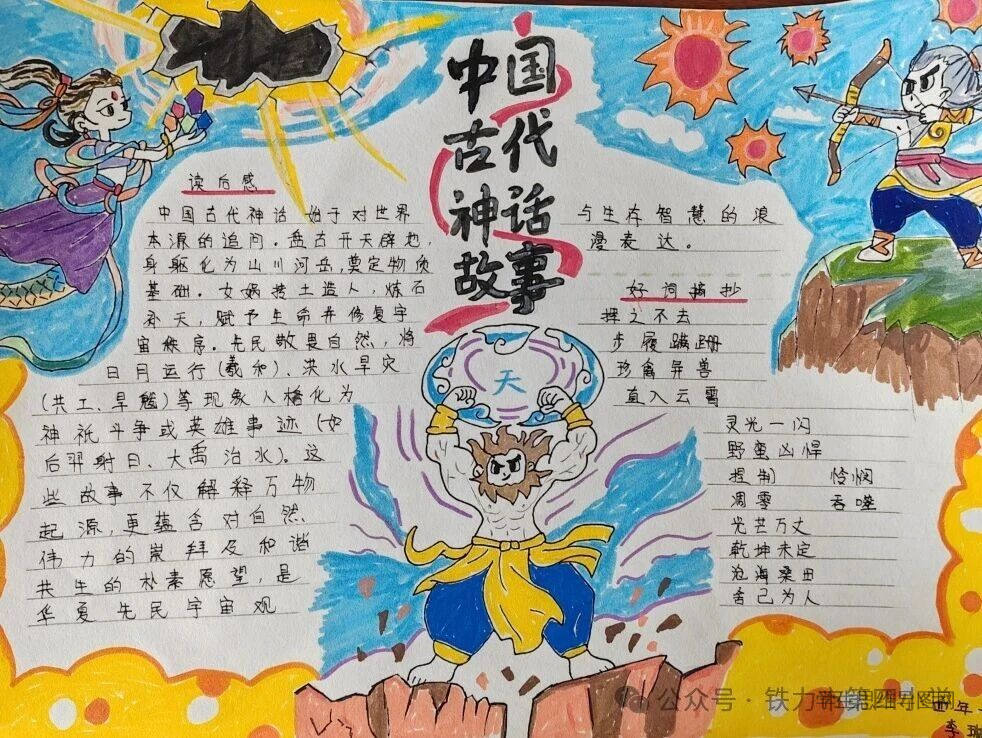 中国
古代
神话
故事
读后感
中国古代神话始于对世界
本源的追问。盘古开天辟地,
身躯化为山川河岳,奠定物质
基础。女娲抟土造人,炼石
补天,赋予生命并修复宇
宙秩序。先民敬畏自然,将
日月运行(羲和)、洪水旱灾
(共工、旱魃)等现象人格化为
神祇斗争或英雄事迹(如
后羿射日、大禹治水)。这
些故事不仅解释万物
起源,更蕴含对自然
伟力的崇拜及和谐
共生的朴素愿望,是
华夏先民宇宙观
与生存智慧的浪
漫表达。
好词摘抄
挥之不去
步履蹒跚
珍禽异兽
直入云霄
灵光一闪
野蛮凶悍
捏制 怜悯
凋零 吞噬
光芒万丈
乾坤未定
沧海桑田
舍己为人
天
公众号·铁力市第四小学